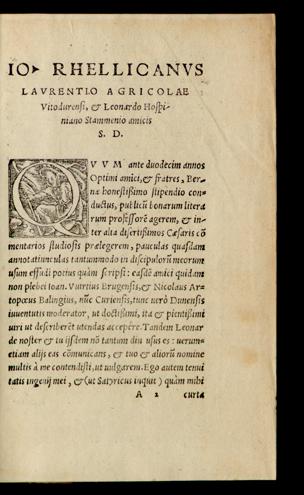 IO‣ RHELLICANVS
LAVRENTIO AGRICOLAE
Vitodurensi, & Leonardo Hospi-
niano Stammenio amicis
S. D.
QVVM ante duodecim annos
Optimi amici, & fratres, Ber-
næ honestissimo stipendio con-
ductus, publicū bonarum litera
rum professorē agerem, & in-
ter alia disertissimos Cæsaris cō
mentarios studiosis prælegerem, pauculas quasdam
annotatiunculas tantummodo in discipulorū meorum
usum effudi potius quàm scripsi: easdē amici quidam
non plebei Ioan. Vuirtius Brugensis, & Nicolaus Ar-
topœus Balingius, nūc Curiensis, tunc uerò Dunensis
iuuentutis moderator, ut doctissimi, ita & pientissimi
uiri ut describerēt utendas accepére. Tandem Leonar
de noster & tu ijsdem nō tantum diu usus es: uerum-
etiam alijs eas cōmunicans, & tuo & aliorū nomine
multis à me contendisti, ut uulgarem. Ego autem tenui
tatis ingenij mei, & (ut Satyricus inquit) quàm mihi
A 2 curta